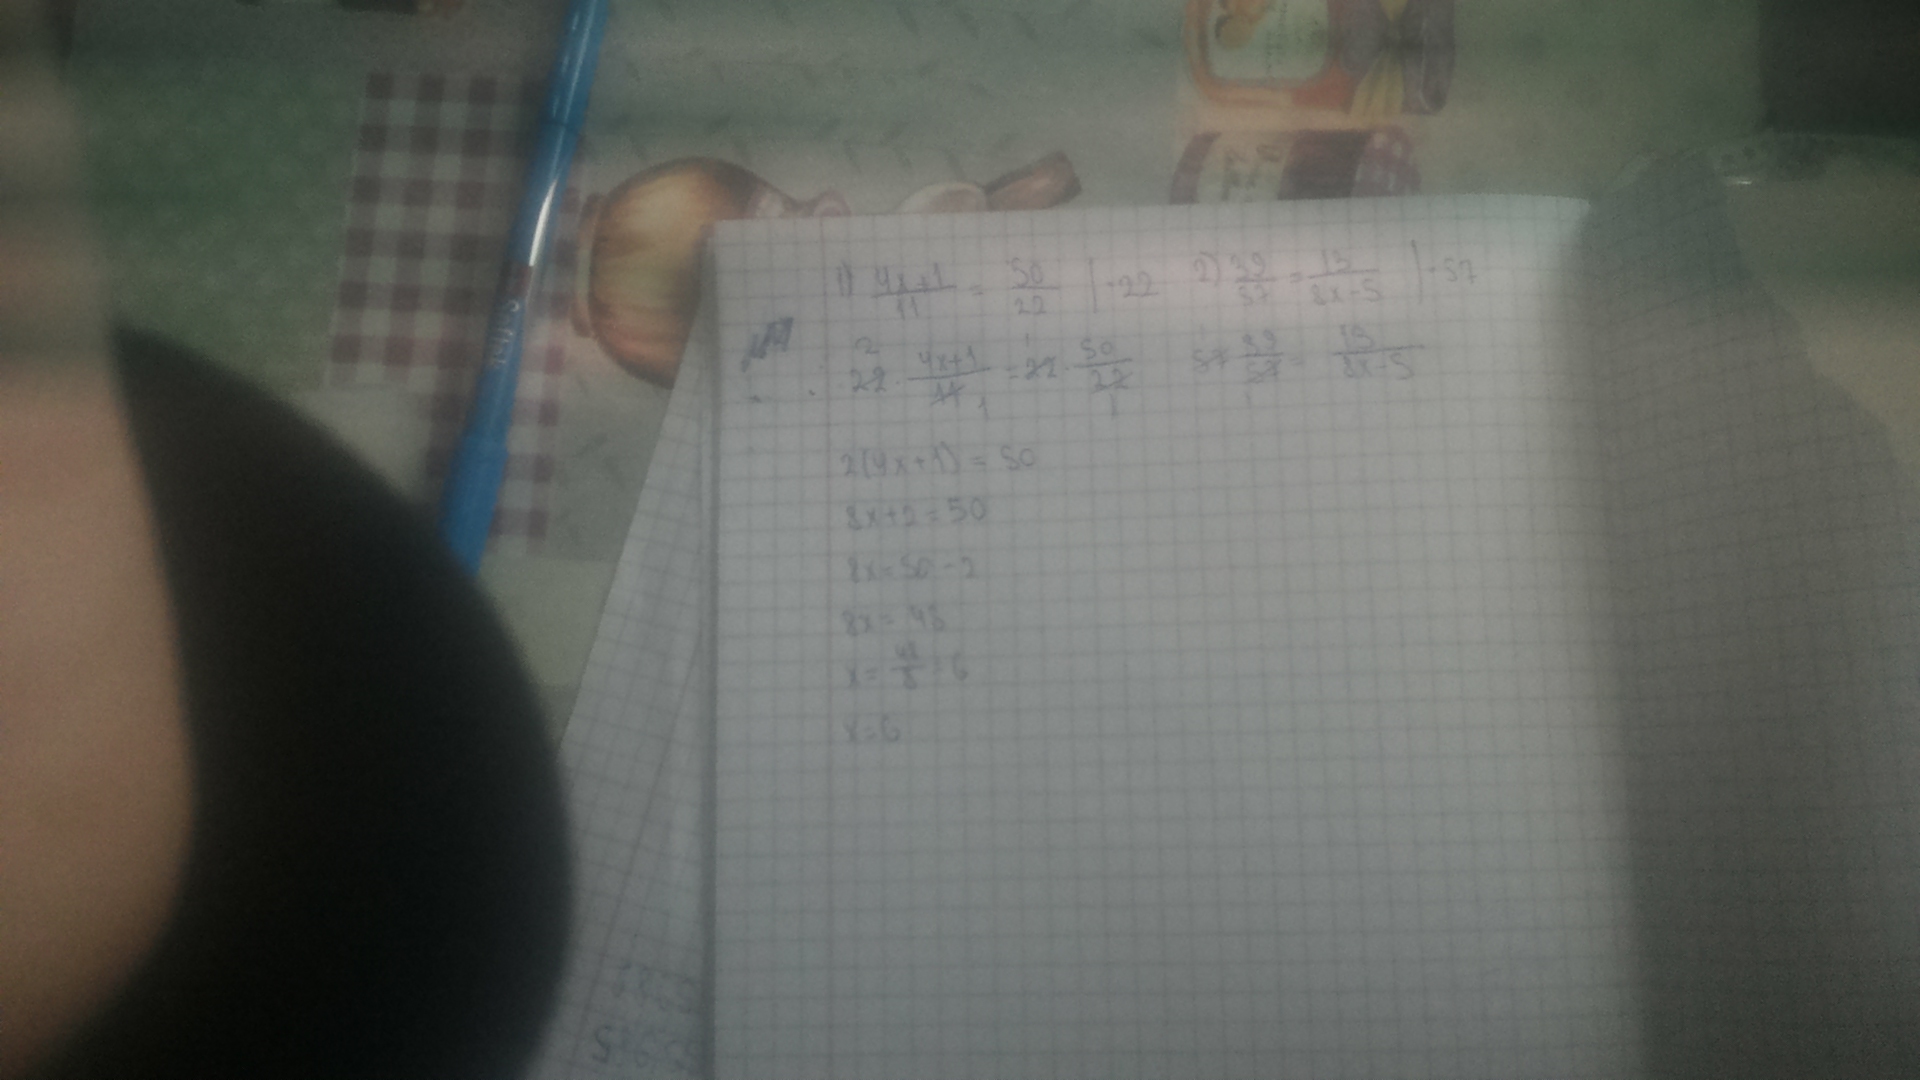 1) (4x+1)/11 = 50/22 | ·22
2) 39/57 = 13/(8x-5) | ·57
22 · (4x+1)/11 = 22 · 50/22
57 · 39/57 = 13/(8x-5)
2(4x+1) = 50
8x+2=50
8x=50-2
8x=48
x=48/8=6
x=6